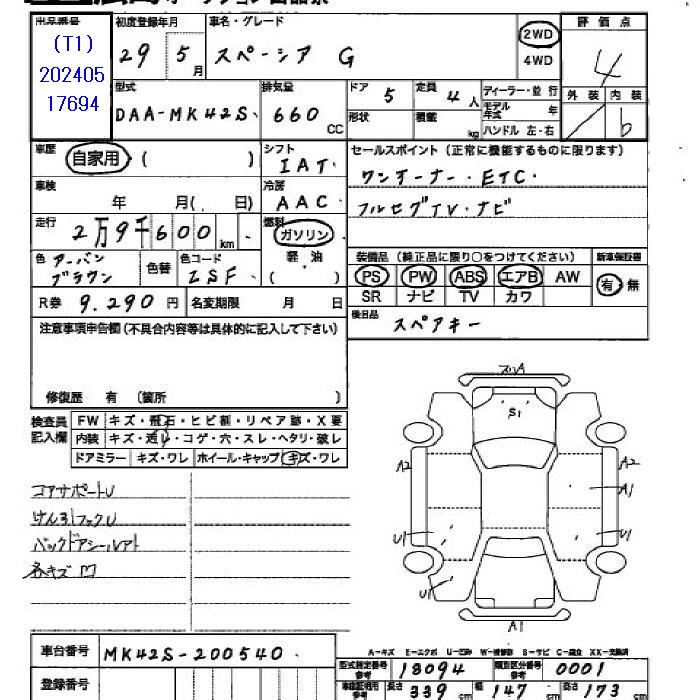 出品番号 初度登録年月 車名・グレード 評価点
(T1)
202405
17694
29 5月 スペーシア G 2WD 4
4WD
型式 排気量 ドア 5 定員 4人 ディーラー・並行 外装 内装
DAA-MK42S 660 CC 形状 積載 kg モデル年式 年 b
ハンドル 左・右
車歴 自家用 ( ) シフト IAT セールスポイント(正常に機能するものに限ります)
ワンオーナー・ETC・
車検 年 月( 日) 冷房 AAC フルセグTV・ナビ
走行 2万9千600km 燃料 ガソリン
軽・油
( )
色 アーバンブラウン 色替 色コード ZSF 装備品(純正品に限り○をつけてください) 新車保証書
PS PW ABS エアB AW 有・無
SR ナビ TV カワ
R券 9.290円 名変期限 月 日
後日品 スペアキー
注意事項申告欄(不具合内容等は具体的に記入して下さい)
修復歴 有 (箇所 )
検査員記入欄 FW キズ・飛石・ヒビ割・リペア跡・X要
内装 キズ・汚レ・コゲ・穴・スレ・ヘタリ・破レ
ドアミラー キズ・ワレ ホイール・キャップ キズ・ワレ
コアサポートU
けん引フックU
バックドアシールアト
各キズ凹
S1
A2 A2
A1
U1 U1
U1
A1
A-キズ E-エクボ U-凹み W-補修跡 S-サビ C-腐食 XX-交換済
車台番号 MK42S-200540
型式指定番号 参考 18094 類別区分番号 参考 0001
登録番号 長さ 339 cm 幅 147 cm 高さ 173 cm